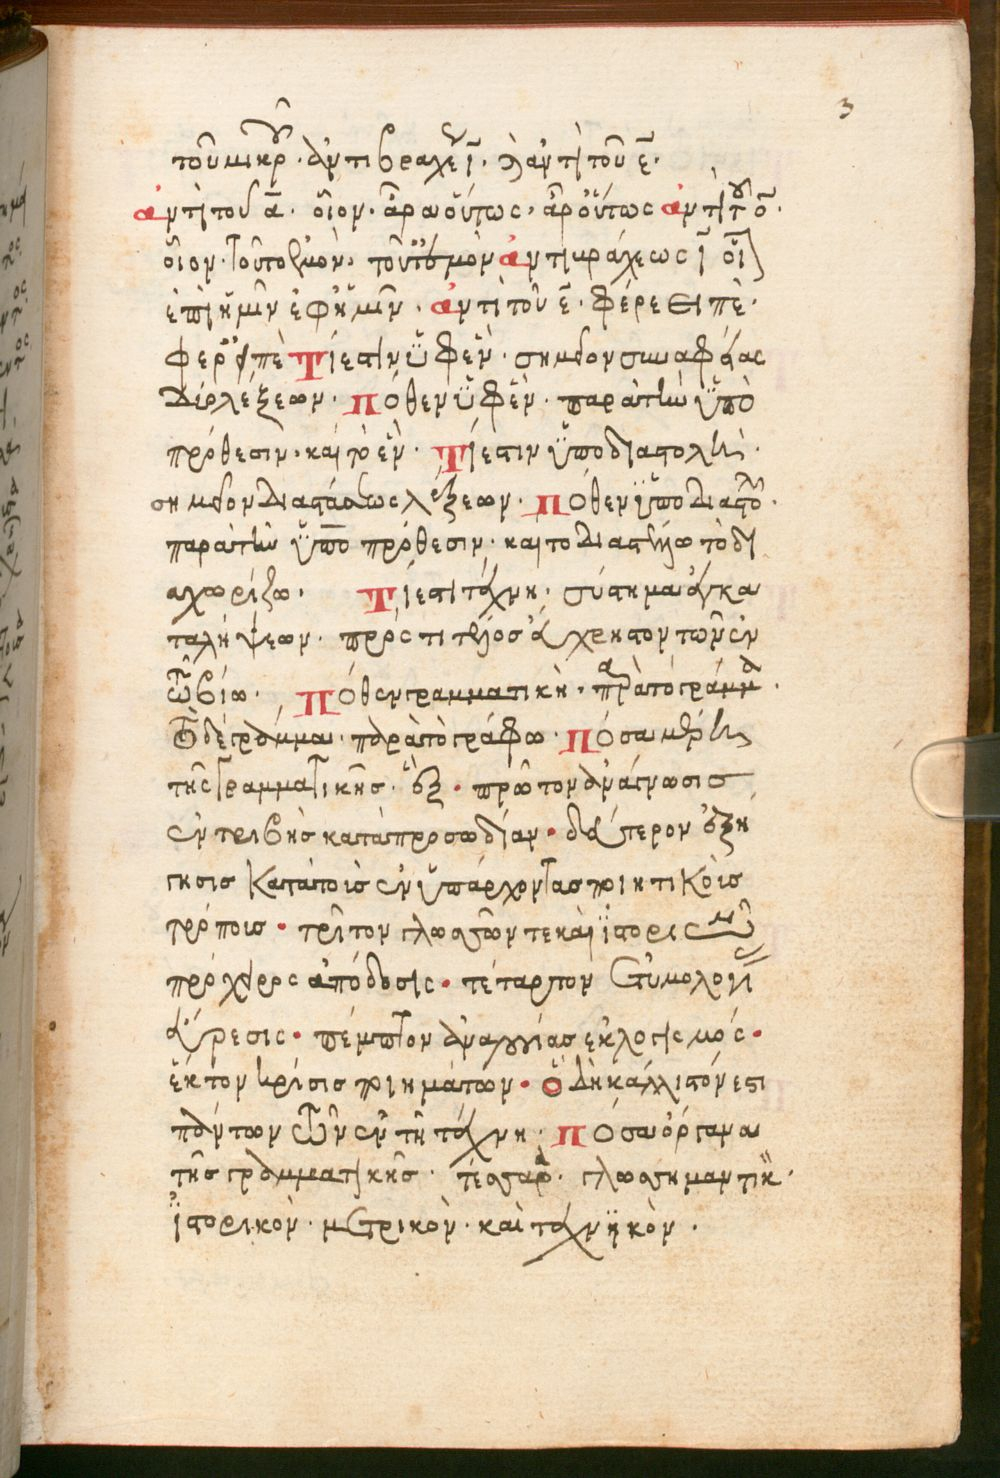 3
τοῦ μικροῦ · ἀντὶ βραχέως ῑ · ἢ ἀντὶ τοῦ ε̄ ·
ἀντὶ τοῦ ᾱ · οἷον · ἆρα οὕτως · ἆρ' οὕτως ἀντὶ τοῦ ο̄ ·
οἷον · τοῦτο ἐμὸν · τοῦτ' ἐμὸν ἀντὶ βραχέως ῑ οἷον
ἐπὶ ἡμῖν ἐφ' ἡμῖν · ἀντὶ τοῦ ε̄ · φέρε εἰπὲ ·
φέρ' εἰπὲ Τί ἐστιν ὑφ' ἕν · σημεῖον συναφείας
δύο λέξεων · Πόθεν ὑφ' ἕν · παρὰ τὴν ὑπὸ
πρόθεσιν · καὶ τὸ ἓν · Τί ἐστιν ὑποδιαστολὴ ·
σημεῖον διαστάσεως λέξεων · Πόθεν ὑποδιαστολὴ ·
παρὰ τὴν ὑπὸ πρόθεσιν · καὶ το διαστέλλω τὸ δι
αχωρίζω · Τί ἐστι τέχνη · σύστημα ἐγκα
ταλήψεων · πρός τι τέλος εὔχρηστον τῶν ἐν
τῷ βίῳ · Πόθεν γραμματικὴ · παρὰ τὸ γράμμα ·
τὸ δὲ γράμμα · παρὰ τὸ γράφω · Πόσα μέρη
τῆς γραμματικῆς · ἕξ · πρῶτον ἀνάγνωσις
ἐντριβὴς κατὰ προσωδίαν · δεύτερον ἐξή
γησις κατὰ τοὺς ἐνυπάρχοντας ποιητικοὺς
τρόπους · τρίτον γλωσσῶν τε καὶ ἱστοριῶν
πρόχειρος ἀπόδοσις · τέταρτον ἐτυμολογίας
εὕρεσις · πέμπτον ἀναλογίας ἐκλογισμός ·
ἕκτον κρίσις ποιημάτων · ὃ δὴ κάλλιστόν ἐστι
πάντων τῶν ἐν τῇ τέχνῃ · Πόσα ὄργανα
τῆς γραμματικῆς · τέσσαρα · γλωσσηματικὸν ·
ἱστορικὸν · μετρικὸν · καὶ τεχνικὸν ·